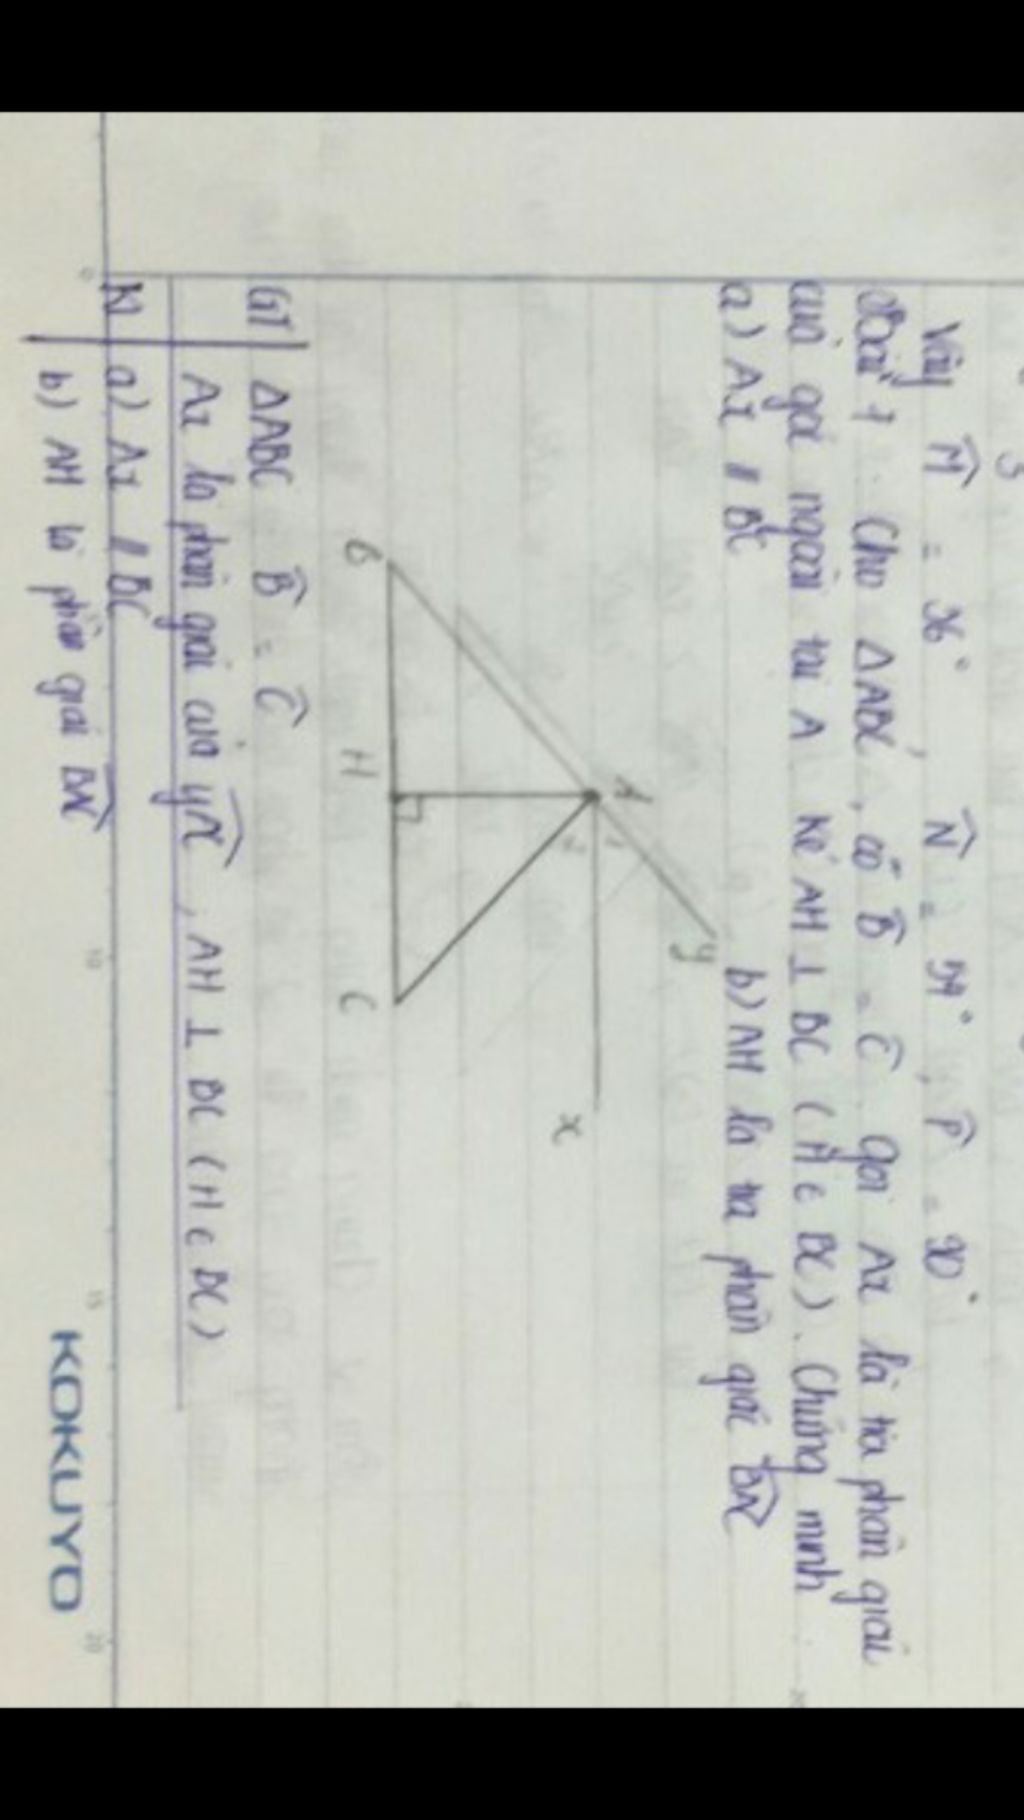 Vậy M̂ = 36°, N̂ = 54°, P̂ = 90°
Bài 7: Cho ΔABC, có B̂ = Ĉ. Gọi Ax là tia phân giác
của góc ngoài tại A. Kẻ AH ⊥ BC (H ∈ BC). Chứng minh
a) Ax // BC b) AH là tia phân giác BAC
y
A
1
2
x
B
H
C
GT ΔABC B̂ = Ĉ
Ax là phân giác của yAC, AH ⊥ BC (H ∈ BC)
Kl a) Ax // BC
b) AH là phân giác BAC
KOKUYO